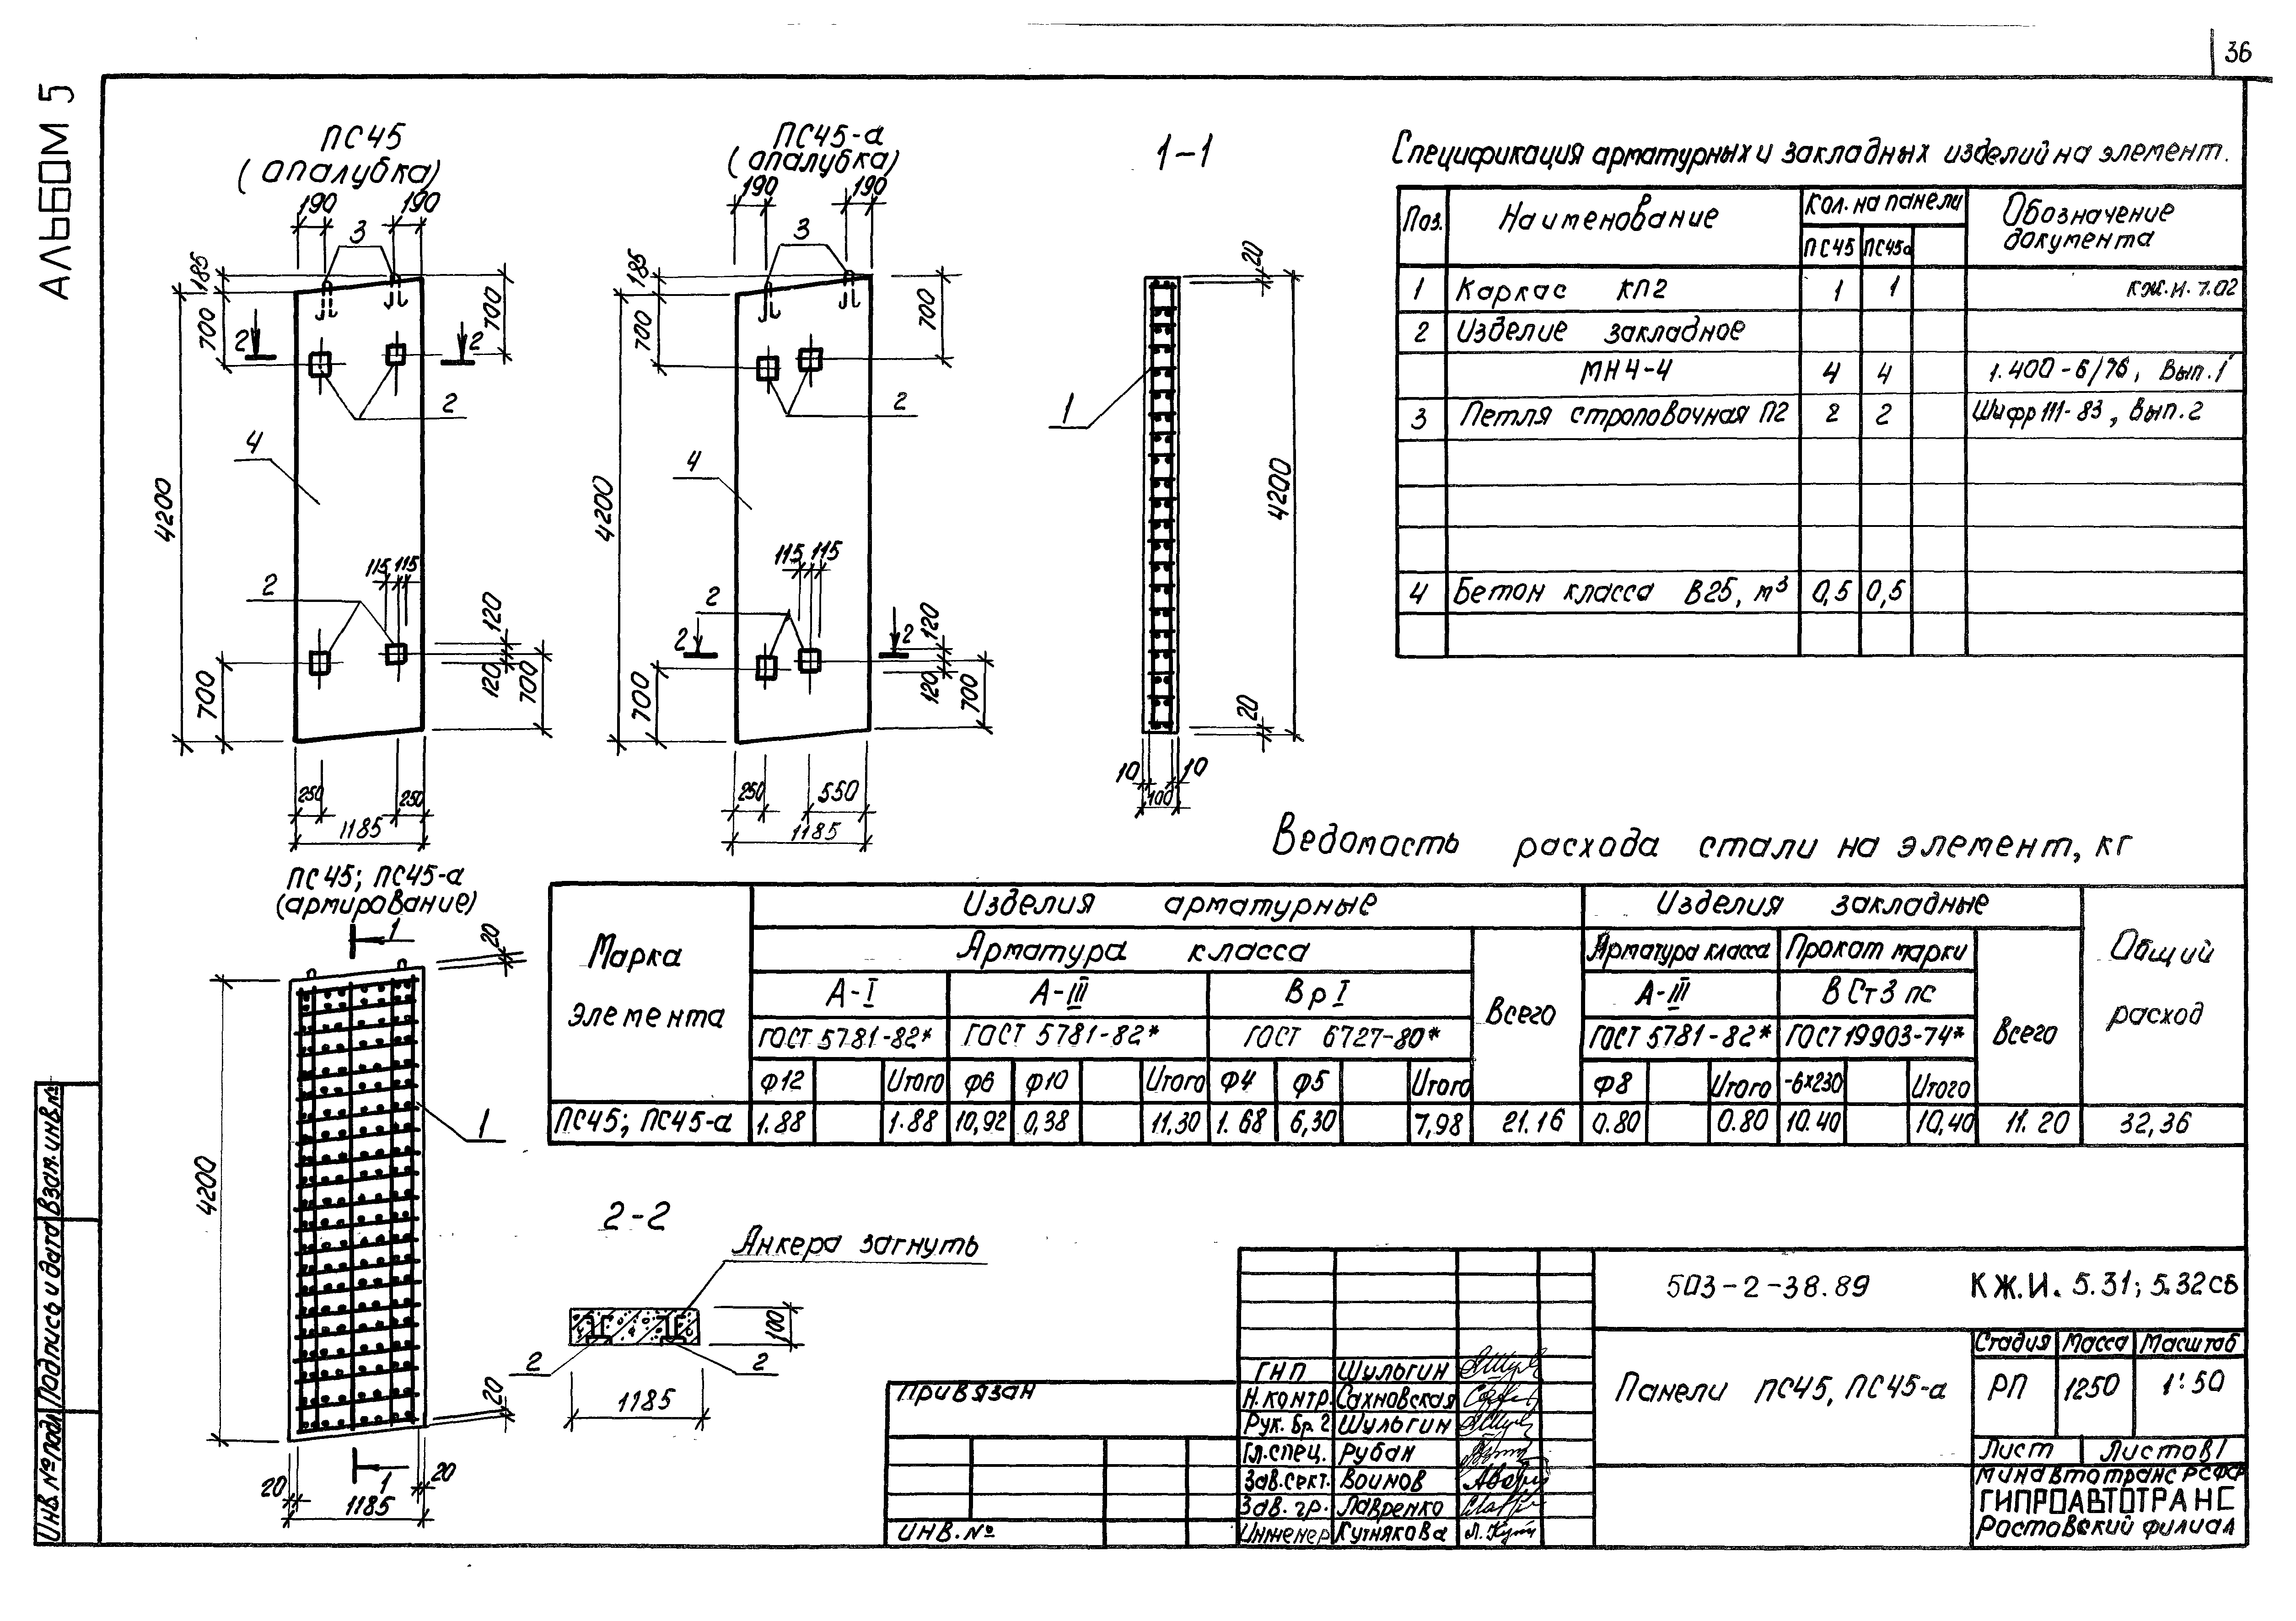 36
АЛЬБОМ 5
ПС45
(опалубка)
190 190
3
185
4200
700
700
2 2
2
4
115 115
2
120
120
700
700
250 250
1185
ПС45-а
(опалубка)
190 190
3
185
4200
700
700
2
4
115 115
2
2 2
120
120
700
700
250 550
1185
1-1
20
1
4200
20
10 10
100
Спецификация арматурных и закладных изделий на элемент.
Поз. Наименование Кол. на панели Обозначение документа
ПС45 ПС45а
1 Каркас КП2 1 1 КЖ.И. 7.02
2 Изделие закладное
МН4-4 4 4 1.400-6/76, Вып.1
3 Петля строповочная П2 2 2 Шифр 111-83, Вып.2
4 Бетон класса В25, м³ 0,5 0,5
Ведомость расхода стали на элемент, кг
Марка элемента
Изделия арматурные Изделия закладные Общий расход
Арматура класса Всего Арматура класса Прокат марки Всего
А-I А-III Вр I А-III ВСт3пс
ГОСТ 5781-82* ГОСТ 5781-82* ГОСТ 6727-80* ГОСТ 5781-82* ГОСТ 19903-74*
Ф12 Итого Ф6 Ф10 Итого Ф4 Ф5 Итого Ф8 Итого -6×230 Итого
ПС45; ПС45-а 1.88 1.88 10,92 0,38 11,30 1.68 6,30 7,98 21.16 0.80 0.80 10.40 10,40 11.20 32,36
ПС45; ПС45-а
(армирование)
1
20
4200
1
20
1
20 20
1185
2-2
Анкера загнуть
100
2 2
1185
503-2-38.89 КЖ.И. 5.31; 5.32сб
Панели ПС45, ПС45-а
Стадия Масса Масштаб
РП 1250 1:50
Лист Листов 1
Минавтотранс РСФСР
ГИПРОАВТОТРАНС
Ростовский филиал
ГНП Шульгин
Н.контр. Сахновская
Рук. бр.2 Шульгин
Гл.спец. Рубан
Зав.сект. Воинов
Зав. гр. Лавренко
Инженер Кутнякова
Привязан
ИНВ.№
Инв. № подл. Подпись и дата Взам. инв. №